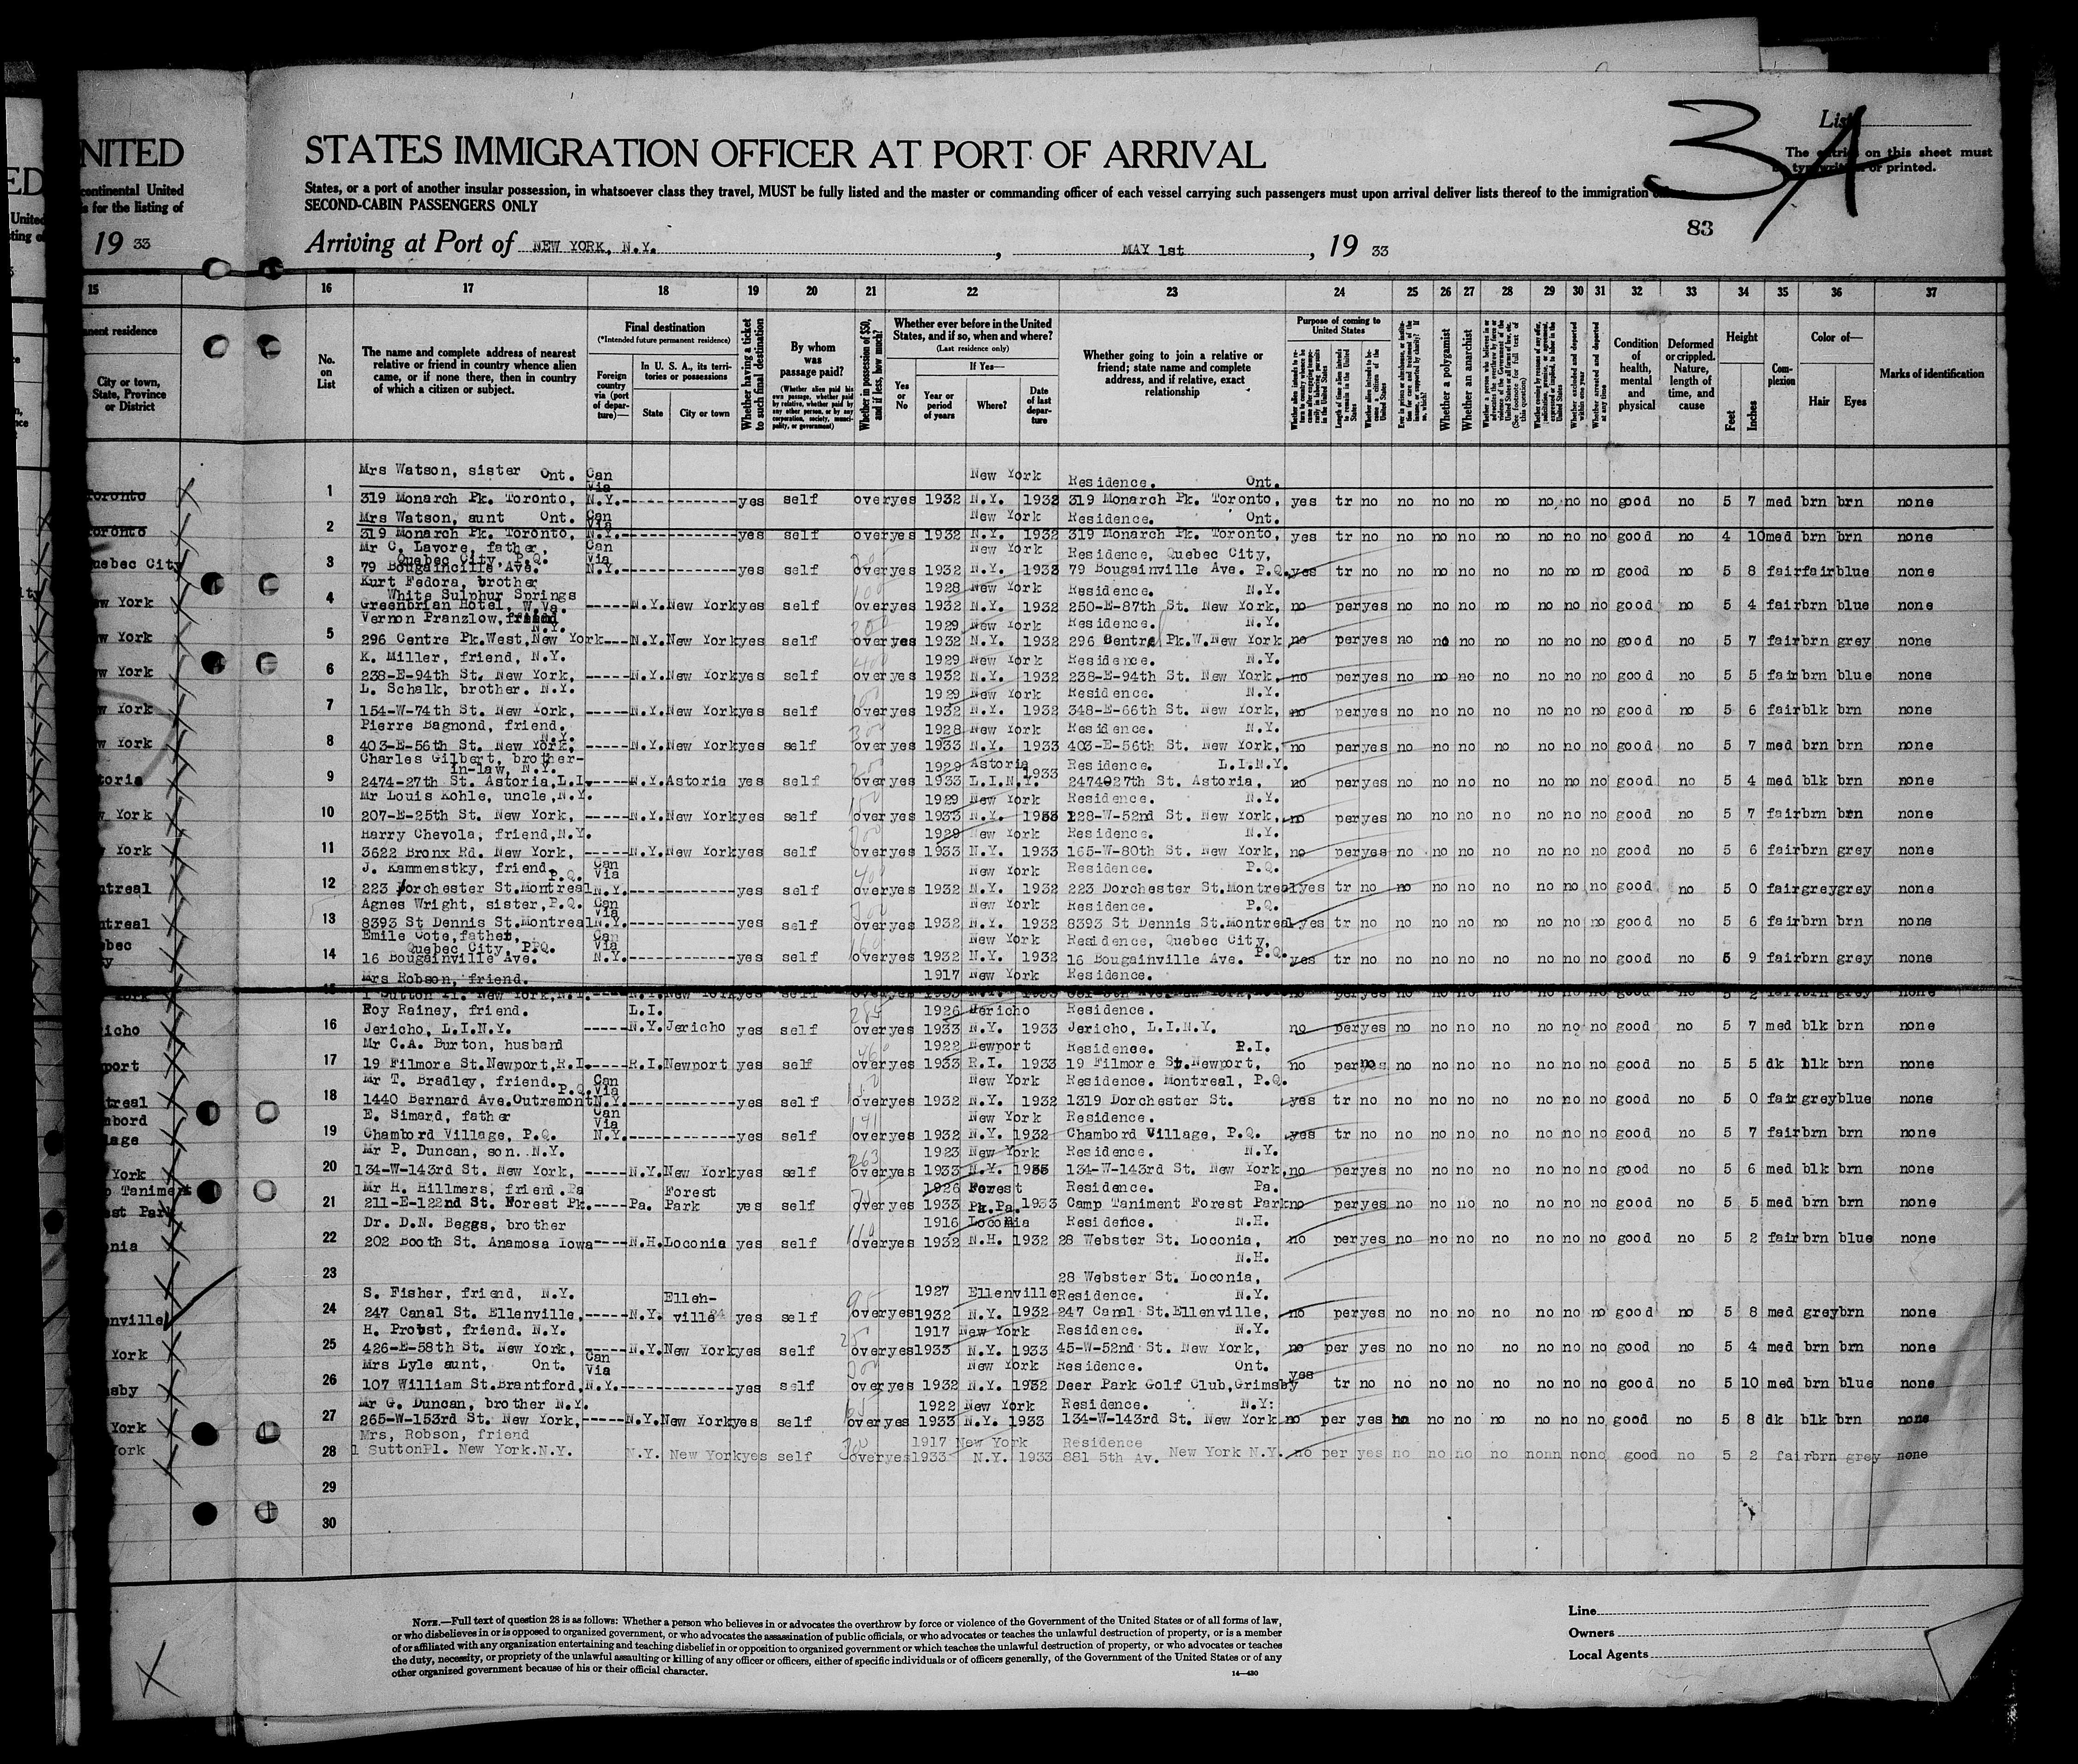 NITED
STATES IMMIGRATION OFFICER AT PORT OF ARRIVAL
3A
List
The entries on this sheet must
be typewritten or printed.
continental United
is for the listing of
States, or a port of another insular possession, in whatsoever class they travel, MUST be fully listed and the master or commanding officer of each vessel carrying such passengers must upon arrival deliver lists thereof to the immigration
SECOND-CABIN PASSENGERS ONLY
83
19 33
Arriving at Port of NEW YORK, N.Y. , MAY 1st , 19 33
15 16 17 18 19 20 21 22 23 24 25 26 27 28 29 30 31 32 33 34 35 36 37
City or town, State, Province or District
No. on List
The name and complete address of nearest relative or friend in country whence alien came, or if none there, then in country of which a citizen or subject.
Final destination
(*Intended future permanent residence)
Foreign country via (port of departure)—
In U. S. A., its territories or possessions
State
City or town
Whether having a ticket to such final destination
By whom was passage paid?
(Whether alien paid his own passage, whether paid by relative, whether paid by any other person, or by any corporation, society, municipality, or government)
Whether in possession of $50, and if less, how much?
Whether ever before in the United States, and if so, when and where?
(Last residence only)
Yes or No
If Yes—
Year or period of years
Where?
Date of last departure
Whether going to join a relative or friend; state name and complete address, and if relative, exact relationship
Purpose of coming to United States
Length of time alien intends to remain in the United States
Whether alien intends to become a citizen of the United States
Whether a polygamist
Whether an anarchist
Whether excluded and deported within one year
Whether arrested and deported at any time
Condition of health, mental and physical
Deformed or crippled. Nature, length of time, and cause
Height
Feet
Inches
Complexion
Color of—
Hair
Eyes
Marks of identification
Mrs Watson, sister Ont. Can Via New York Residence. Ont.
Toronto 1 319 Monarch Pk. Toronto, N.Y. yes self over yes 1932 N.Y. 1932 319 Monarch Pk. Toronto, yes tr no no no no no no no no good no 5 7 med brn brn none
Mrs Watson, aunt Ont. Can Via New York Residence. Ont.
Toronto 2 319 Monarch Pk. Toronto, N.Y. yes self over yes 1932 N.Y. 1932 319 Monarch Pk. Toronto, yes tr no no no no no no no no good no 4 10 med brn brn none
Mr C. Lavore, father, Can New York Residence, Quebec City,
Quebec City, P.Q. Via
Quebec City 3 79 Bougainville Ave. N.Y. yes self over yes 1932 N.Y. 1933 79 Bougainville Ave. P.Q. yes tr no no no no no no no no good no 5 8 fair fair blue none
Kurt Fedora, brother 1928 New York Residence. N.Y.
White Sulphur Springs
New York 4 Greenbrian Hotel, W.Va. N.Y. New York yes self over yes 1932 N.Y. 1932 250-E-87th St. New York, no per yes no no no no no no no good no 5 4 fair brn blue none
Vernon Pranzlow, friend N.Y. 1929 New York Residence. N.Y.
New York 5 296 Centre Pk.West, New York N.Y. New York yes self over yes 1932 N.Y. 1932 296 Centre Pk.W. New York no per yes no no no no no no no good no 5 7 fair brn grey none
K. Miller, friend, N.Y. 1929 New York Residence. N.Y.
New York 6 238-E-94th St. New York, N.Y. New York yes self over yes 1932 N.Y. 1932 238-E-94th St. New York. no per yes no no no no no no no good no 5 5 fair brn blue none
L. Schalk, brother. N.Y. 1929 New York Residence. N.Y.
New York 7 154-W-74th St. New York, N.Y. New York yes self over yes 1932 N.Y. 1932 348-E-66th St. New York, no per yes no no no no no no no good no 5 6 fair blk brn none
Pierre Bagnond, friend. N.Y. 1928 New York Residence. N.Y.
New York 8 403-E-56th St. New York, N.Y. New York yes self over yes 1933 N.Y. 1933 403-E-56th St. New York, no per yes no no no no no no no good no 5 7 med brn brn none
Charles Gilbert, brother-in-law, N.Y. 1929 Astoria Residence. L.I.N.Y.
Astoria 9 2474-27th St. Astoria, L.I. N.Y. Astoria yes self over yes 1933 L.I.N.Y. 1933 2474-27th St. Astoria, no per yes no no no no no no no good no 5 4 med blk brn none
Mr Louis Kohle, uncle, N.Y. 1929 New York Residence. N.Y.
New York 10 207-E-25th St. New York, N.Y. New York yes self over yes 1933 N.Y. 1933 228-W-52nd St. New York, no per yes no no no no no no no good no 5 7 fair brn brn none
Harry Chevola, friend, N.Y. 1929 New York Residence. N.Y.
York 11 3622 Bronx Rd. New York, N.Y. New York yes self over yes 1933 N.Y. 1933 165-W-80th St. New York, no per yes no no no no no no no good no 5 6 fair brn grey none
J. Kammenstky, friend, P.Q. Can Via New York Residence. P.Q.
Montreal 12 223 Dorchester St.Montreal N.Y. yes self over yes 1932 N.Y. 1932 223 Dorchester St.Montreal yes tr no no no no no no no no good no 5 0 fair grey grey none
Agnes Wright, sister, P.Q. Can Via New York Residence. P.Q.
Montreal 13 8393 St Dennis St.Montreal N.Y. yes self over yes 1932 N.Y. 1932 8393 St Dennis St.Montreal yes tr no no no no no no no no good no 5 6 fair brn brn none
Emile Cote, father, Can New York Residence, Quebec City,
Quebec City, P.Q. Via
14 16 Bougainville Ave. N.Y. yes self over yes 1932 N.Y. 1932 16 Bougainville Ave. P.Q. yes tr no no no no no no no no good no 5 9 fair brn grey none
Mrs Robson, friend. 1917 New York Residence.
Roy Rainey, friend. L.I. 1926 Jericho Residence.
Jericho 16 Jericho, L.I.N.Y. N.Y. Jericho yes self over yes 1933 N.Y. 1933 Jericho, L.I.N.Y. no per yes no no no no no no no good no 5 7 med blk brn none
Mr C.A. Burton, husband 1922 Newport Residence. R.I.
Newport 17 19 Filmore St.Newport, R.I. R.I. Newport yes self over yes 1933 R.I. 1933 19 Filmore St.Newport, no per no no no no no no no good no 5 5 dk blk brn none
Mr T. Bradley, friend. P.Q. Can Via New York Residence. Montreal, P.Q.
Montreal 18 1440 Bernard Ave.Outremont N.Y. yes self over yes 1932 N.Y. 1932 1319 Dorchester St. yes tr no no no no no no no no good no 5 0 fair grey blue none
E. Simard, father Can Via New York Residence.
19 Chambord Village, P.Q. N.Y. yes self over yes 1932 N.Y. 1932 Chambord Village, P.Q. yes tr no no no no no no no no good no 5 7 fair brn brn none
Mr P. Duncan, son. N.Y. 1923 New York Residence. N.Y.
York 20 134-W-143rd St. New York, N.Y. New York yes self over yes 1933 N.Y. 1933 134-W-143rd St. New York, no per yes no no no no no no no good no 5 6 med blk brn none
Mr H. Hillmers, friend. Pa Forest 1926 Forest Residence. Pa.
21 211-E-122nd St. Forest Pk. Pa. Park yes self over yes 1933 Pk.Pa. 1933 Camp Taniment Forest Park no per yes no no no no no no no good no 5 5 med brn brn none
Dr. D.N. Beggs, brother 1916 Loconia Residence. N.H.
22 202 Booth St. Anamosa Iowa N.H. Loconia yes self over yes 1932 N.H. 1932 28 Webster St. Loconia, no per yes no no no no no no no good no 5 2 fair brn blue none
N.H.
23 28 Webster St. Loconia,
S. Fisher, friend, N.Y. Ellen- 1927 Ellenville Residence. N.Y.
24 247 Canal St. Ellenville, N.Y. ville yes self over yes 1932 N.Y. 1932 247 Canal St.Ellenville, no per yes no no no no no no no good no 5 8 med grey brn none
H. Probst, friend. N.Y. 1917 New York Residence. N.Y.
York 25 426-E-58th St. New York, N.Y. New York yes self over yes 1933 N.Y. 1933 45-W-52nd St. New York, no per yes no no no no no no no good no 5 4 med brn brn none
Mrs Lyle aunt, Ont. Can Via New York Residence. Ont.
26 107 William St.Brantford, N.Y. yes self over yes 1932 N.Y. 1932 Deer Park Golf Club, Grimsby yes tr no no no no no no no no good no 5 10 med brn blue none
Mr G. Duncan, brother N.Y. 1922 New York Residence. N.Y:
York 27 265-W-153rd St. New York, N.Y. New York yes self over yes 1933 N.Y. 1933 134-W-143rd St. New York no per yes no no no no no no no good no 5 8 dk blk brn none
Mrs, Robson, friend 1917 New York Residence
York 28 1 SuttonPl. New York.N.Y. N.Y. New York yes self over yes 1933 N.Y. 1933 881 5th Av. New York N.Y. no per yes no no no no nonn nono good no 5 2 fair brn grey none
29
30
NOTE.—Full text of question 28 is as follows: Whether a person who believes in or advocates the overthrow by force or violence of the Government of the United States or of all forms of law,
or who disbelieves in or is opposed to organized government, or who advocates the assassination of public officials, or who advocates or teaches the unlawful destruction of property, or is a member
of or affiliated with any organization entertaining and teaching disbelief in or opposition to organized government or which teaches the unlawful destruction of property, or who advocates or teaches
the duty, necessity, or propriety of the unlawful assaulting or killing of any officer or officers, either of specific individuals or of officers generally, of the Government of the United States or of any
other organized government because of his or their official character.
14—430
Line
Owners
Local Agents